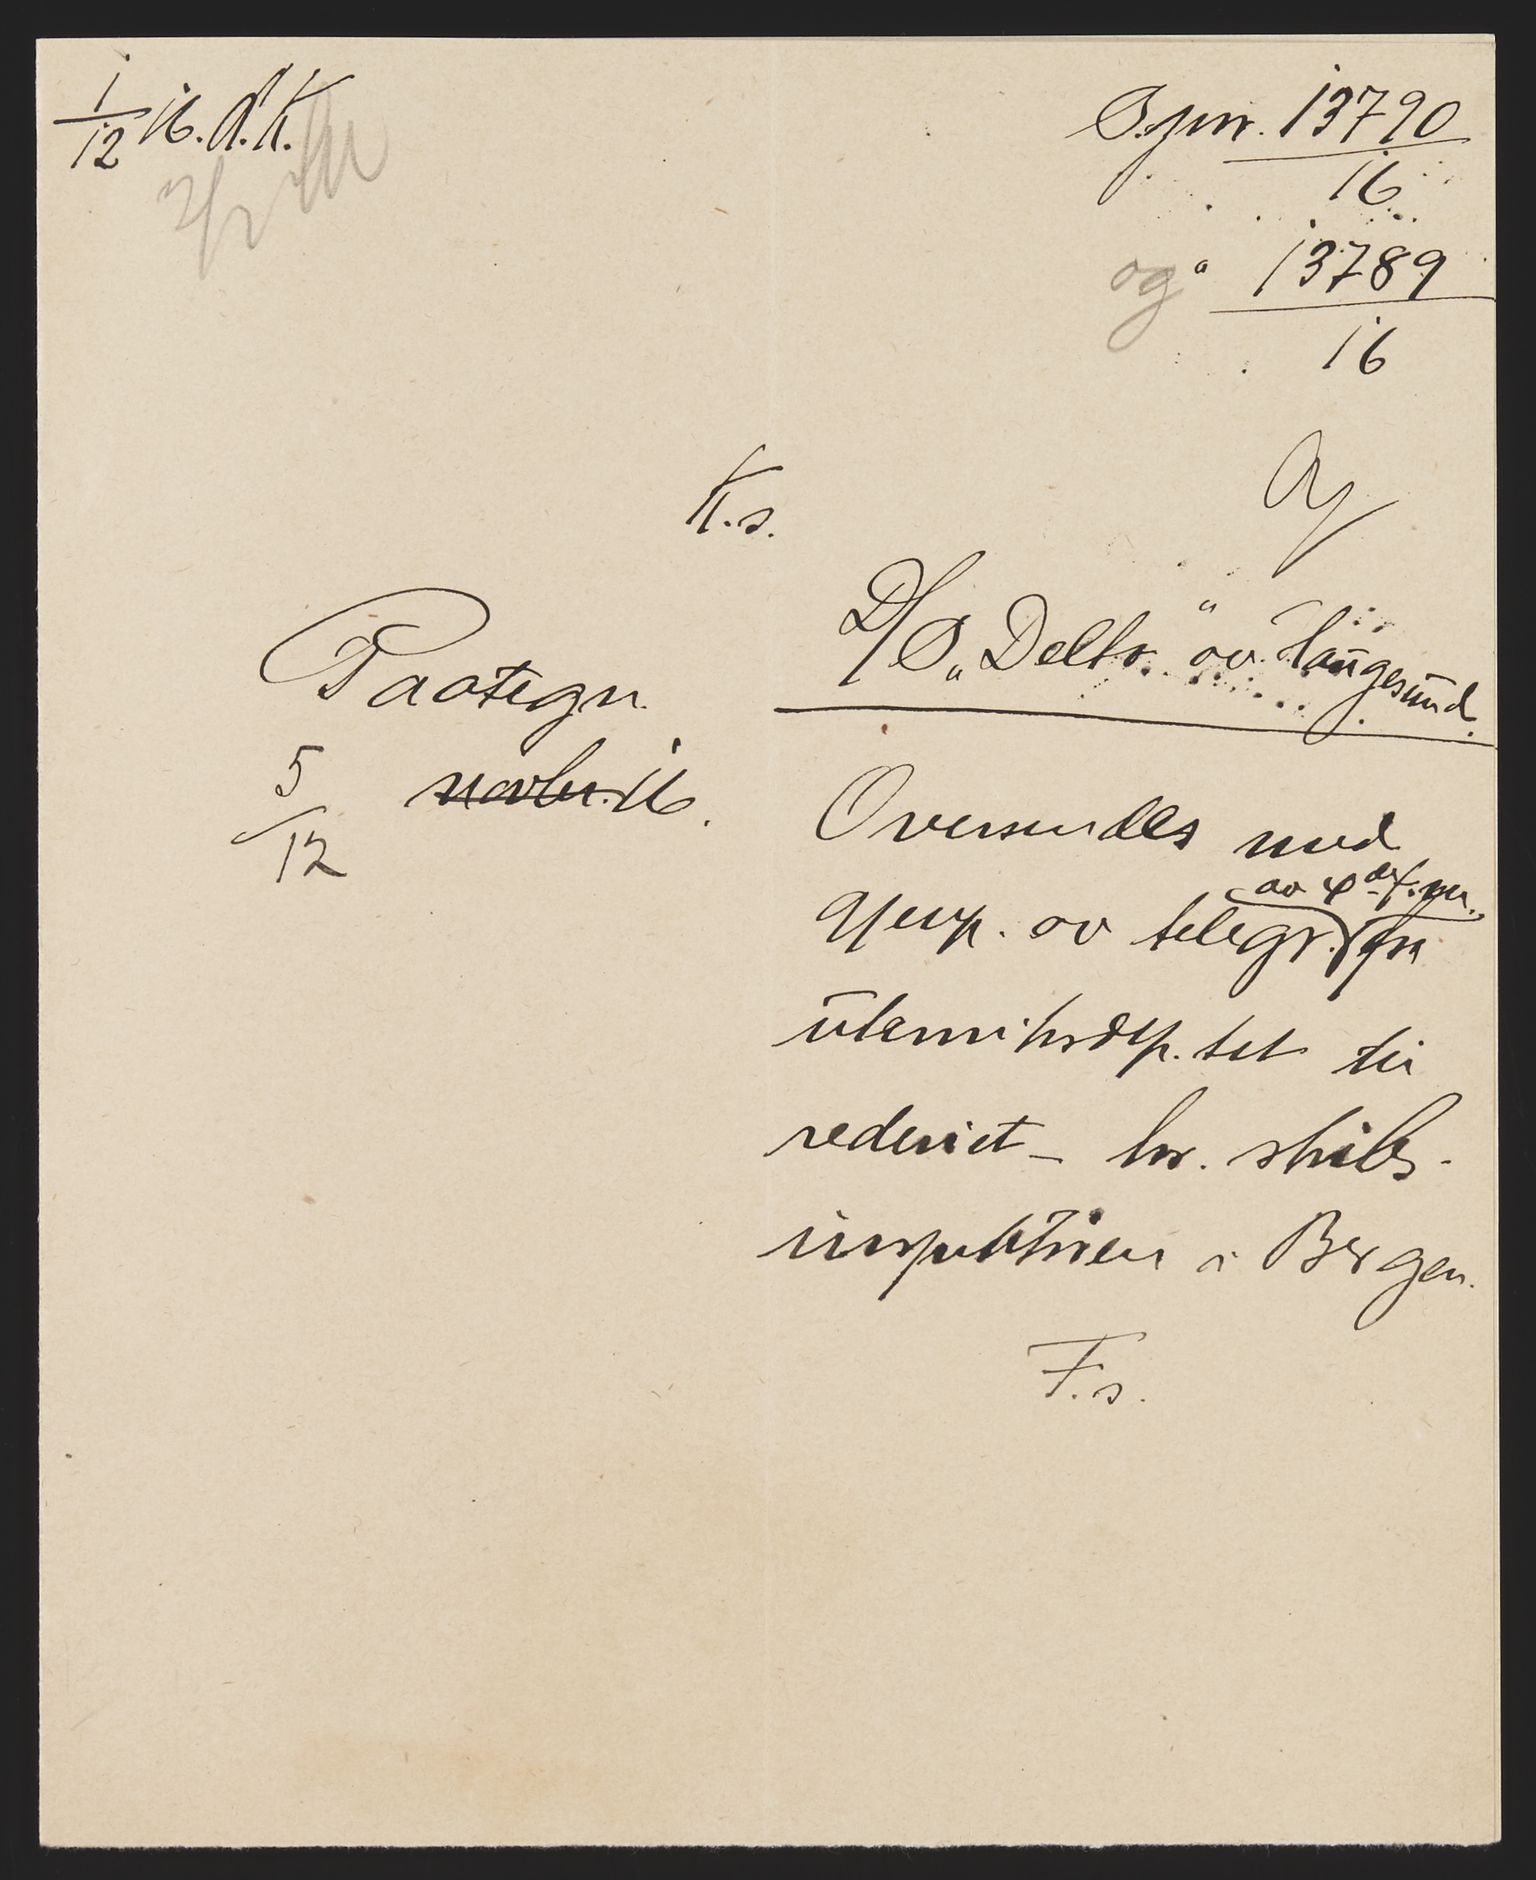 1/12 16. A.K.
S.jnr. 13790
16
og " 13789
16
K.s.
D/S „Delto" av Haugesund.
Paategn.
5/12 novbr. 16.
Oversendes med
gjenp. av telegr. av 4de f.m. fra
utenriksdep.tet til
rederiet – hr. skibs-
inspektören i Bergen.
F.s.